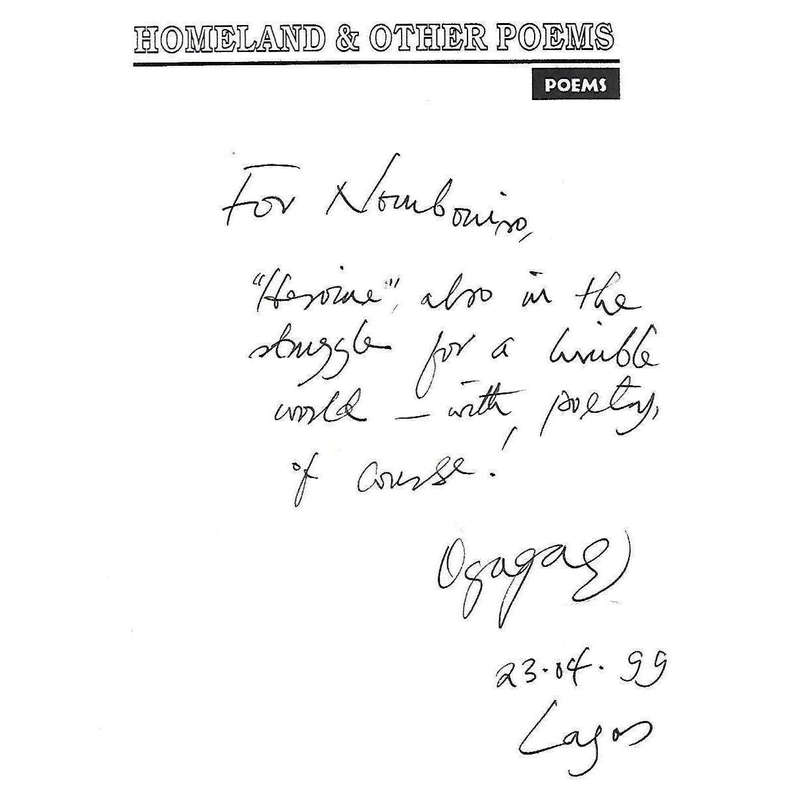 HOMELAND & OTHER POEMS
POEMS
For Nomboniso,
"Heroine", also in the
struggle for a livible
world – with, poetry,
of course!
Ogaga
23.04.99
Lagos